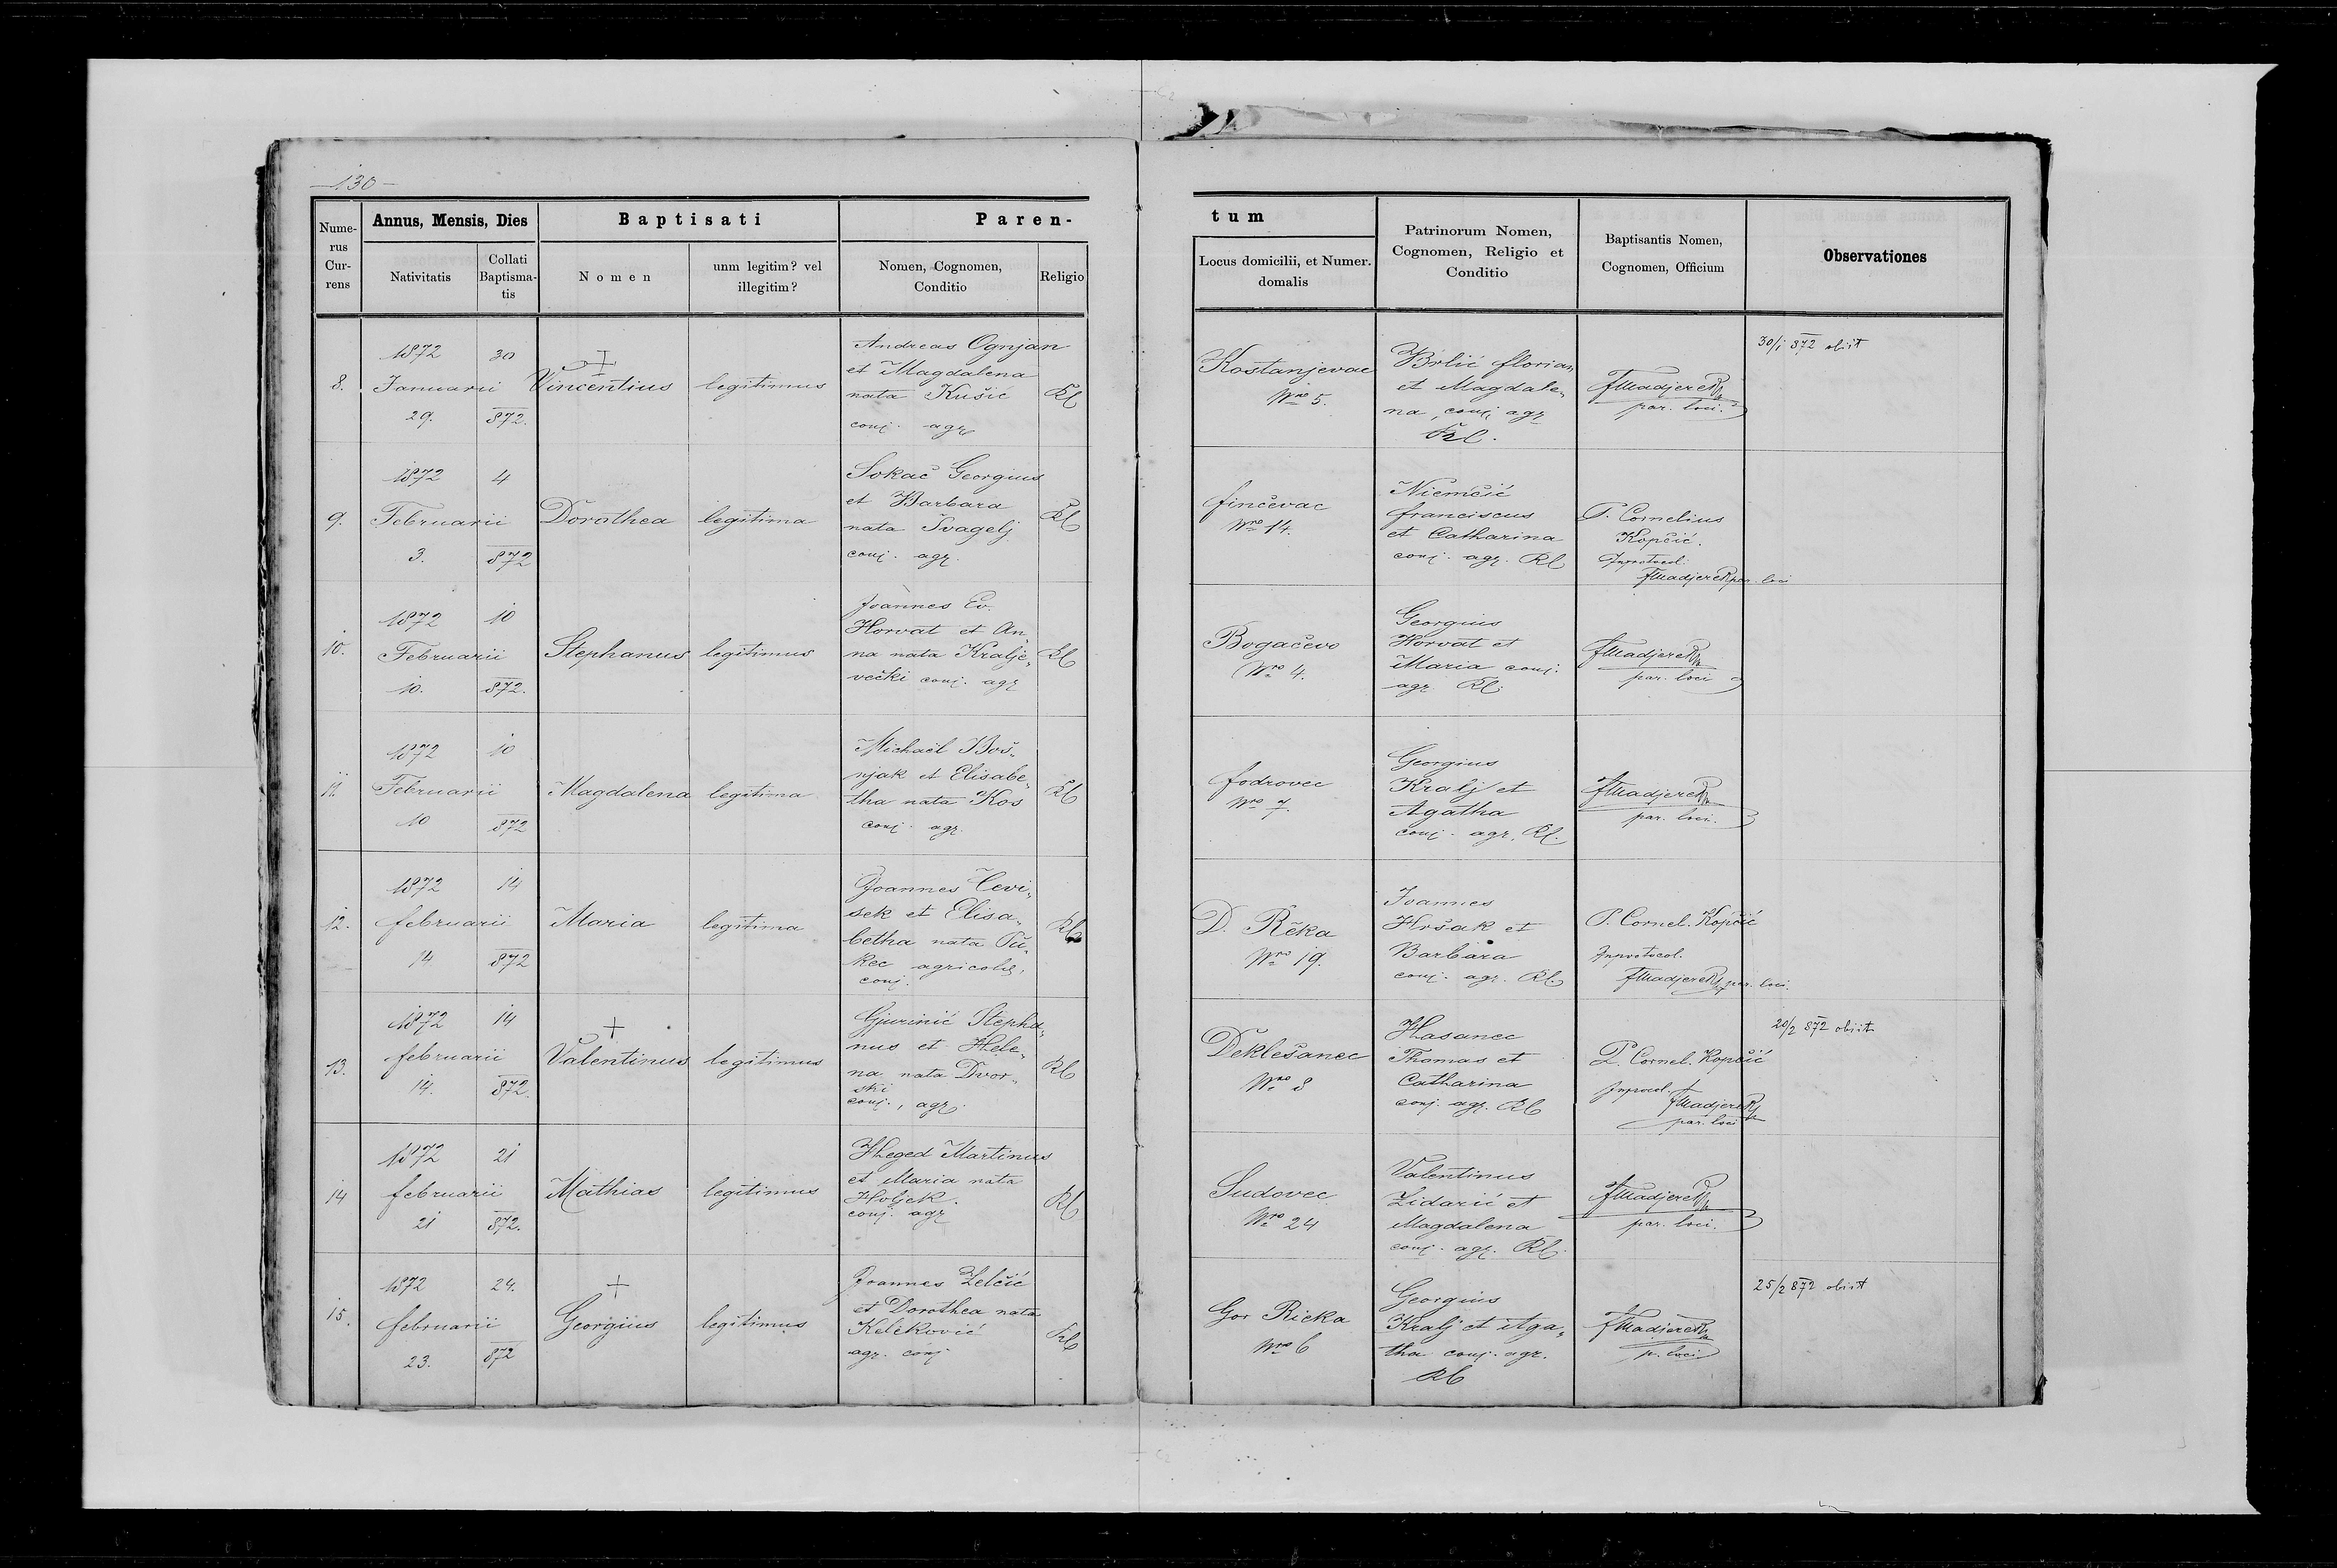 —130—
Nume-
rus
Cur-
rens
Annus, Mensis, Dies
Nativitatis
Collati
Baptisma-
tis
Baptisati
Nomen
unm legitim? vel
illegitim?
Paren-
Nomen, Cognomen,
Conditio
Religio
tum
Locus domicilii, et Numer.
domalis
Patrinorum Nomen,
Cognomen, Religio et
Conditio
Baptisantis Nomen,
Cognomen, Officium
Observationes
8.
1872
Januarii
29.
30
872.
Vincentius
legitimus
Andreas Ognjan
et Magdalena
nata Kušić
conj. agr
RC
Kostanjevac
Nro 5.
Brlić florian
et Magdale„
na, conj. agr
RC.
FMadjerek
par. loci.
30/1 872 obiit
9.
1872
Februarii
3.
4
872
Dorothea
legitima
Sokač Georgius
et Barbara
nata Švagelj
conj. agr.
RC
finčevac
Nro 14.
Niemčić
franciscus
et Catharina
conj. agr. RC
P. Cornelius
Kopčić.
Inprotocol.
FMadjerek par. loci
10.
1872
Februarii
10.
10
872.
Stephanus
legitimus
Joannes Ev.
Horvat et An„
na nata Kralje„
večki conj. agr
RC
Bogačevo
Nro 4.
Georgius
Horvat et
Maria conj.
agr. RC.
FMadjerek
par. loci
11.
1872
Februarii
10
10
872
Magdalena
legitima
Michaël Boš„
njak et Elisabe„
tha nata Kos
conj. agr.
RC
fodrovec
Nro 7.
Georgius
Kralj et
Agatha
conj. agr. RC.
FMadjerek
par. loci.
12.
1872
februarii
14
14
872
Maria
legitima
Joannes Cevi„
sek et Elisa„
betha nata
kec agricolæ,
conj.
RC
D. Rěka
Nro 19.
Joannes
Hršak et
Barbara
conj. agr. RC.
P. Cornel. Kopčić
Inprotocol.
FMadjerek par. loci.
13.
1872
februarii
14.
14
872.
Valentinus
legitimus
Gjurinić Stepha„
nus et Hele„
na nata Dvor„
ski
conj., agr.
RC
Deklešanec
Nro 8
Hasanec
Thomas et
Catharina
conj. agr. RC
P. Cornel. Kopčić
FMadjerek
par. loci
20/2 872 obiit
14
1872
februarii
21
21
872.
Mathias
legitimus
Heged Martinus
et Maria nata
Hvljek.
conj. agr
RC
Sudovec
Nro 24
Valentinus
Zidarić et
Magdalena
conj. agr. RC.
FMadjerek
par. loci.
15.
1872
februarii
23.
24.
872
Georgius
legitimus
Joannes Zelčić
et Dorothea nata
Kelěković
agr. conj
RC
Gor Rieka
Nro 6
Georgius
Kralj et Aga„
tha conj. agr.
RC
FMadjerek
p. loci
25/2 872 obiit